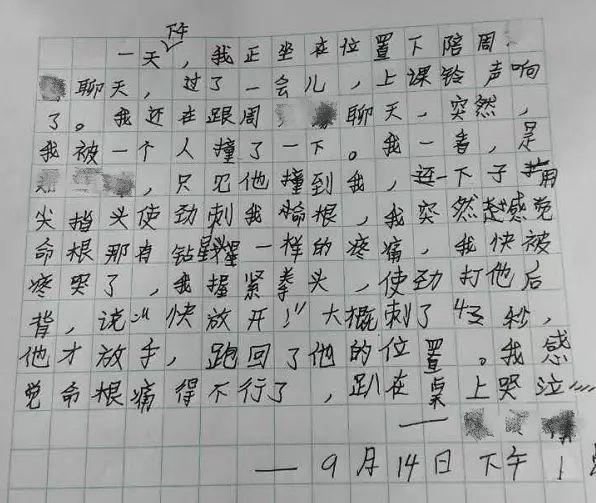 一天下午，我正坐在位置下陪周
聊天，过了一会儿，上课铃声响
了。我还在跟周聊天，突然，
我被一个人撞了一下。我一看，是
，只见他撞到我，还一下子用
尖指头使劲刺我命根，我突然感觉
命根那有钻一样的疼痛，我快被
疼哭了，我握紧拳头，使劲打他后
背，说：“快放开！”大概刺了43秒，
他才放手，跑回了他的位置。我感
觉命根痛得不行了，趴在桌上哭泣……
——
——9月14日下午1